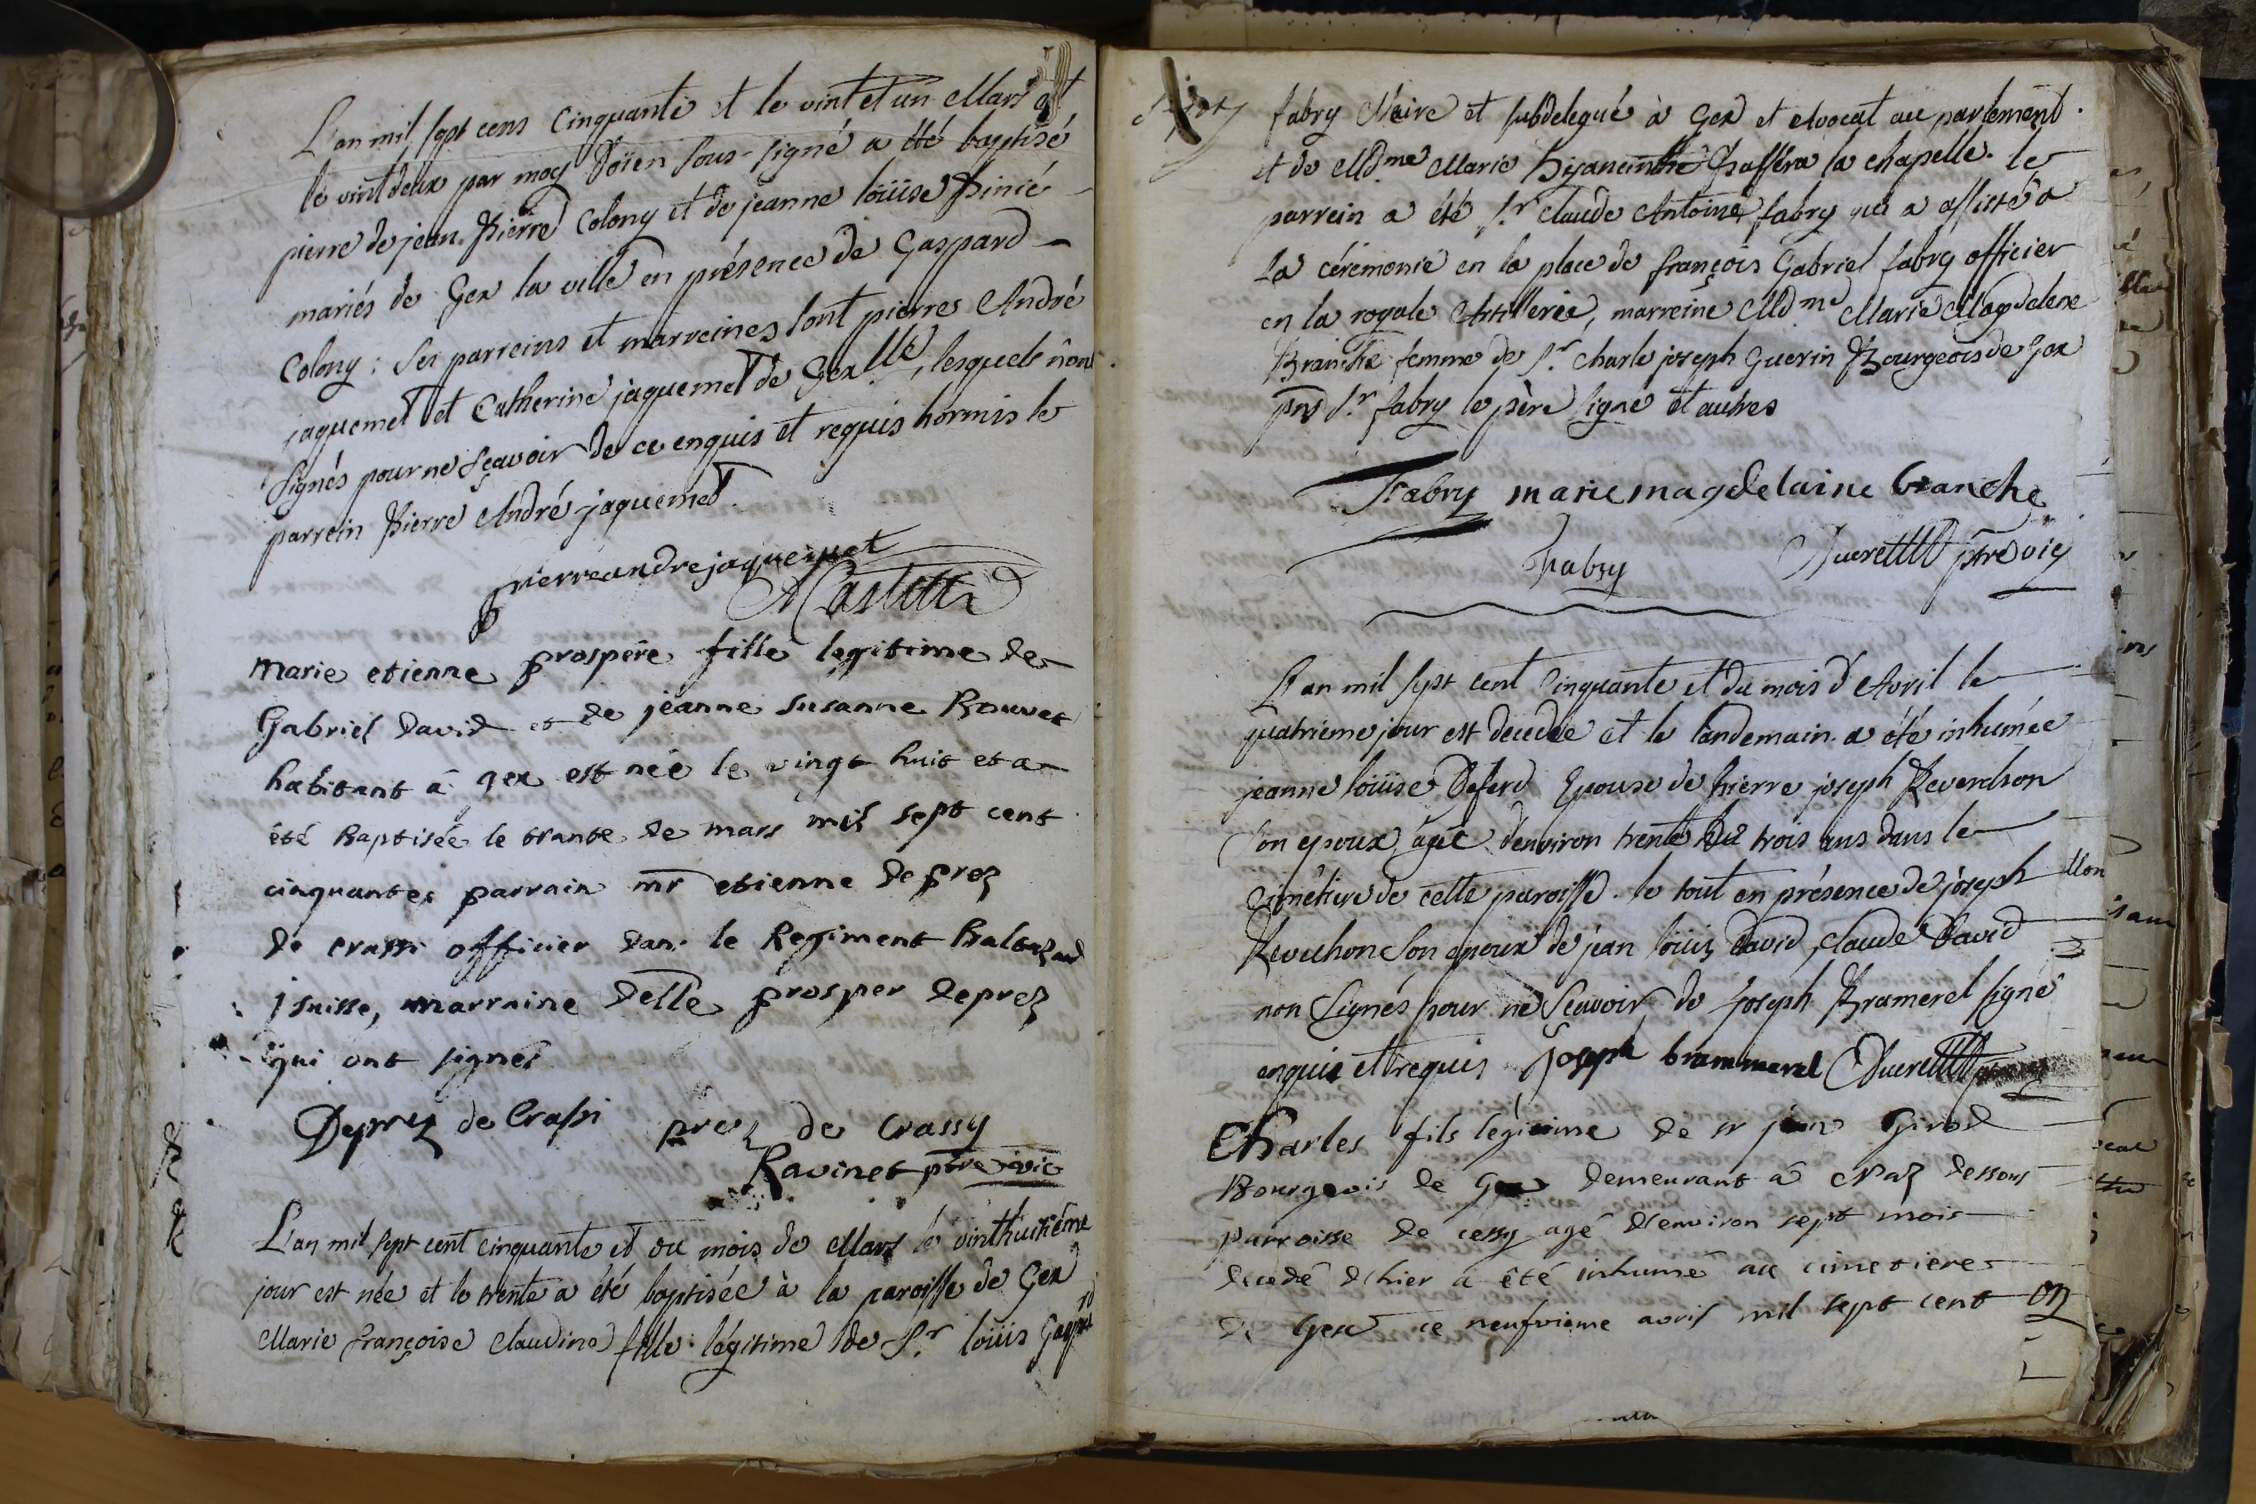 L'an mil sept cens Cinquante et le vint et un Mars
le vint deux par moy Doïen sous-signé a été baptisé
pierre de jean Pierre Colony et de jeanne loüise Pinié
mariés de Gex la ville en présence de Gaspard
Colony : Ses parreins et marreines sont pierre André
jaquemet et Catherine jaquemet de Gex lesquels n'ont
signés pour ne sçavoir de ce enquis et requis hormis le
parrein Pierre André jaquemet.
pierre andre jaquemet
Castotti
marie etienne prospére fille legitime de
Gabriel David et de jéanne susanne Rouvet
habitant á gex est néé le vingt huit et a
été Baptisée le trante de mars mil sept cent
cinquante, parrain mr etienne deprez
de crassi officier dans le Regiment Baltazard
suisse, marraine delle prosper deprez
qui ont signés
Deprez de Crassi prez de Crassy
Ravinet ptre vic
L'an mil sept cent cinquante et du mois de Mars le vinthuitiéme
jour est née et le trente a été baptisée à la paroisse de Gex
Marie françoise Claudine fille légitime de Sr loüis Gaspard
fabry Maire et subdelegué à Gex et Avocat au parlement.
et de Mdme Marie Hyancinthe Passéra la chapelle. le
parrein a été Sr Claude Antoine fabry qui a assisté a
La cérémonie en la place de françois Gabriel fabry officier
en la royale Artillerie, marreine Mdme Marie Magdelene
Branche femme de Sr Charle joseph Guerin Bourgeois de Gex
pnt Sr fabry le père signé et autres
Fabry marie magdelaine branche
Fabry ptre vic
L'an mil sept cent Cinquante et du mois d'Avril le
quatrieme jour est decedée et le landemain a été inhumée
jeanne loüise Deferd Epouse de Pierre joseph Reverchon
son epoux agée d'environ trente trois ans dans le
cimétiere de cette paroisse. le tout en présence de joseph
Reverchon son epoux de jean loüis David, Claude David
non signés pour ne sçavoir, de joseph Bramerel signé
enquis et requis Joseph brammerel
Charles fils légitime de sr jean Girod
Bourgeois de Gex demeurant á Naz dessous
parroisse de cessy agé d'environ sept mois
decedé d'hier a êté inhumé au cimetiere
de Gex ce neufvieme avril mil sept cent